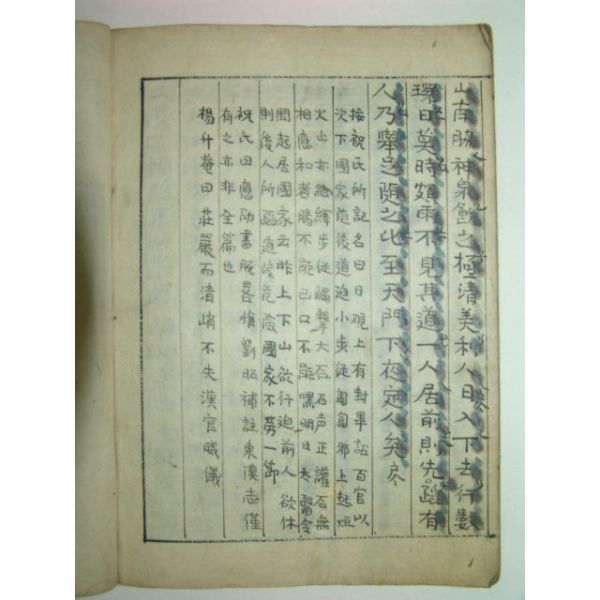 山南脇神泉飮之極清美利人日入下去行數
環日莫時頗雨不見其道一人居前則先蹈有
人乃擧足随之比至天門下夜定人矣
按祝氏所記名曰日觀上有封畢詔百官以
次下國家随後道迫小步從匍匐邪上起炬
火止亦絡繹步從觸擊大石石声正讙石無
相應和者腸不能已口不能嘿明日太醫令
問起居國家云昨上下山欲行迫前人欲休
則後人所蹈道峻危險國家不勞一節
祝氏因應劭書脫畧惟劉昭補註東漢志僅
有之亦非全篇也
楊升菴曰莊嚴而清峭不失漢官威儀